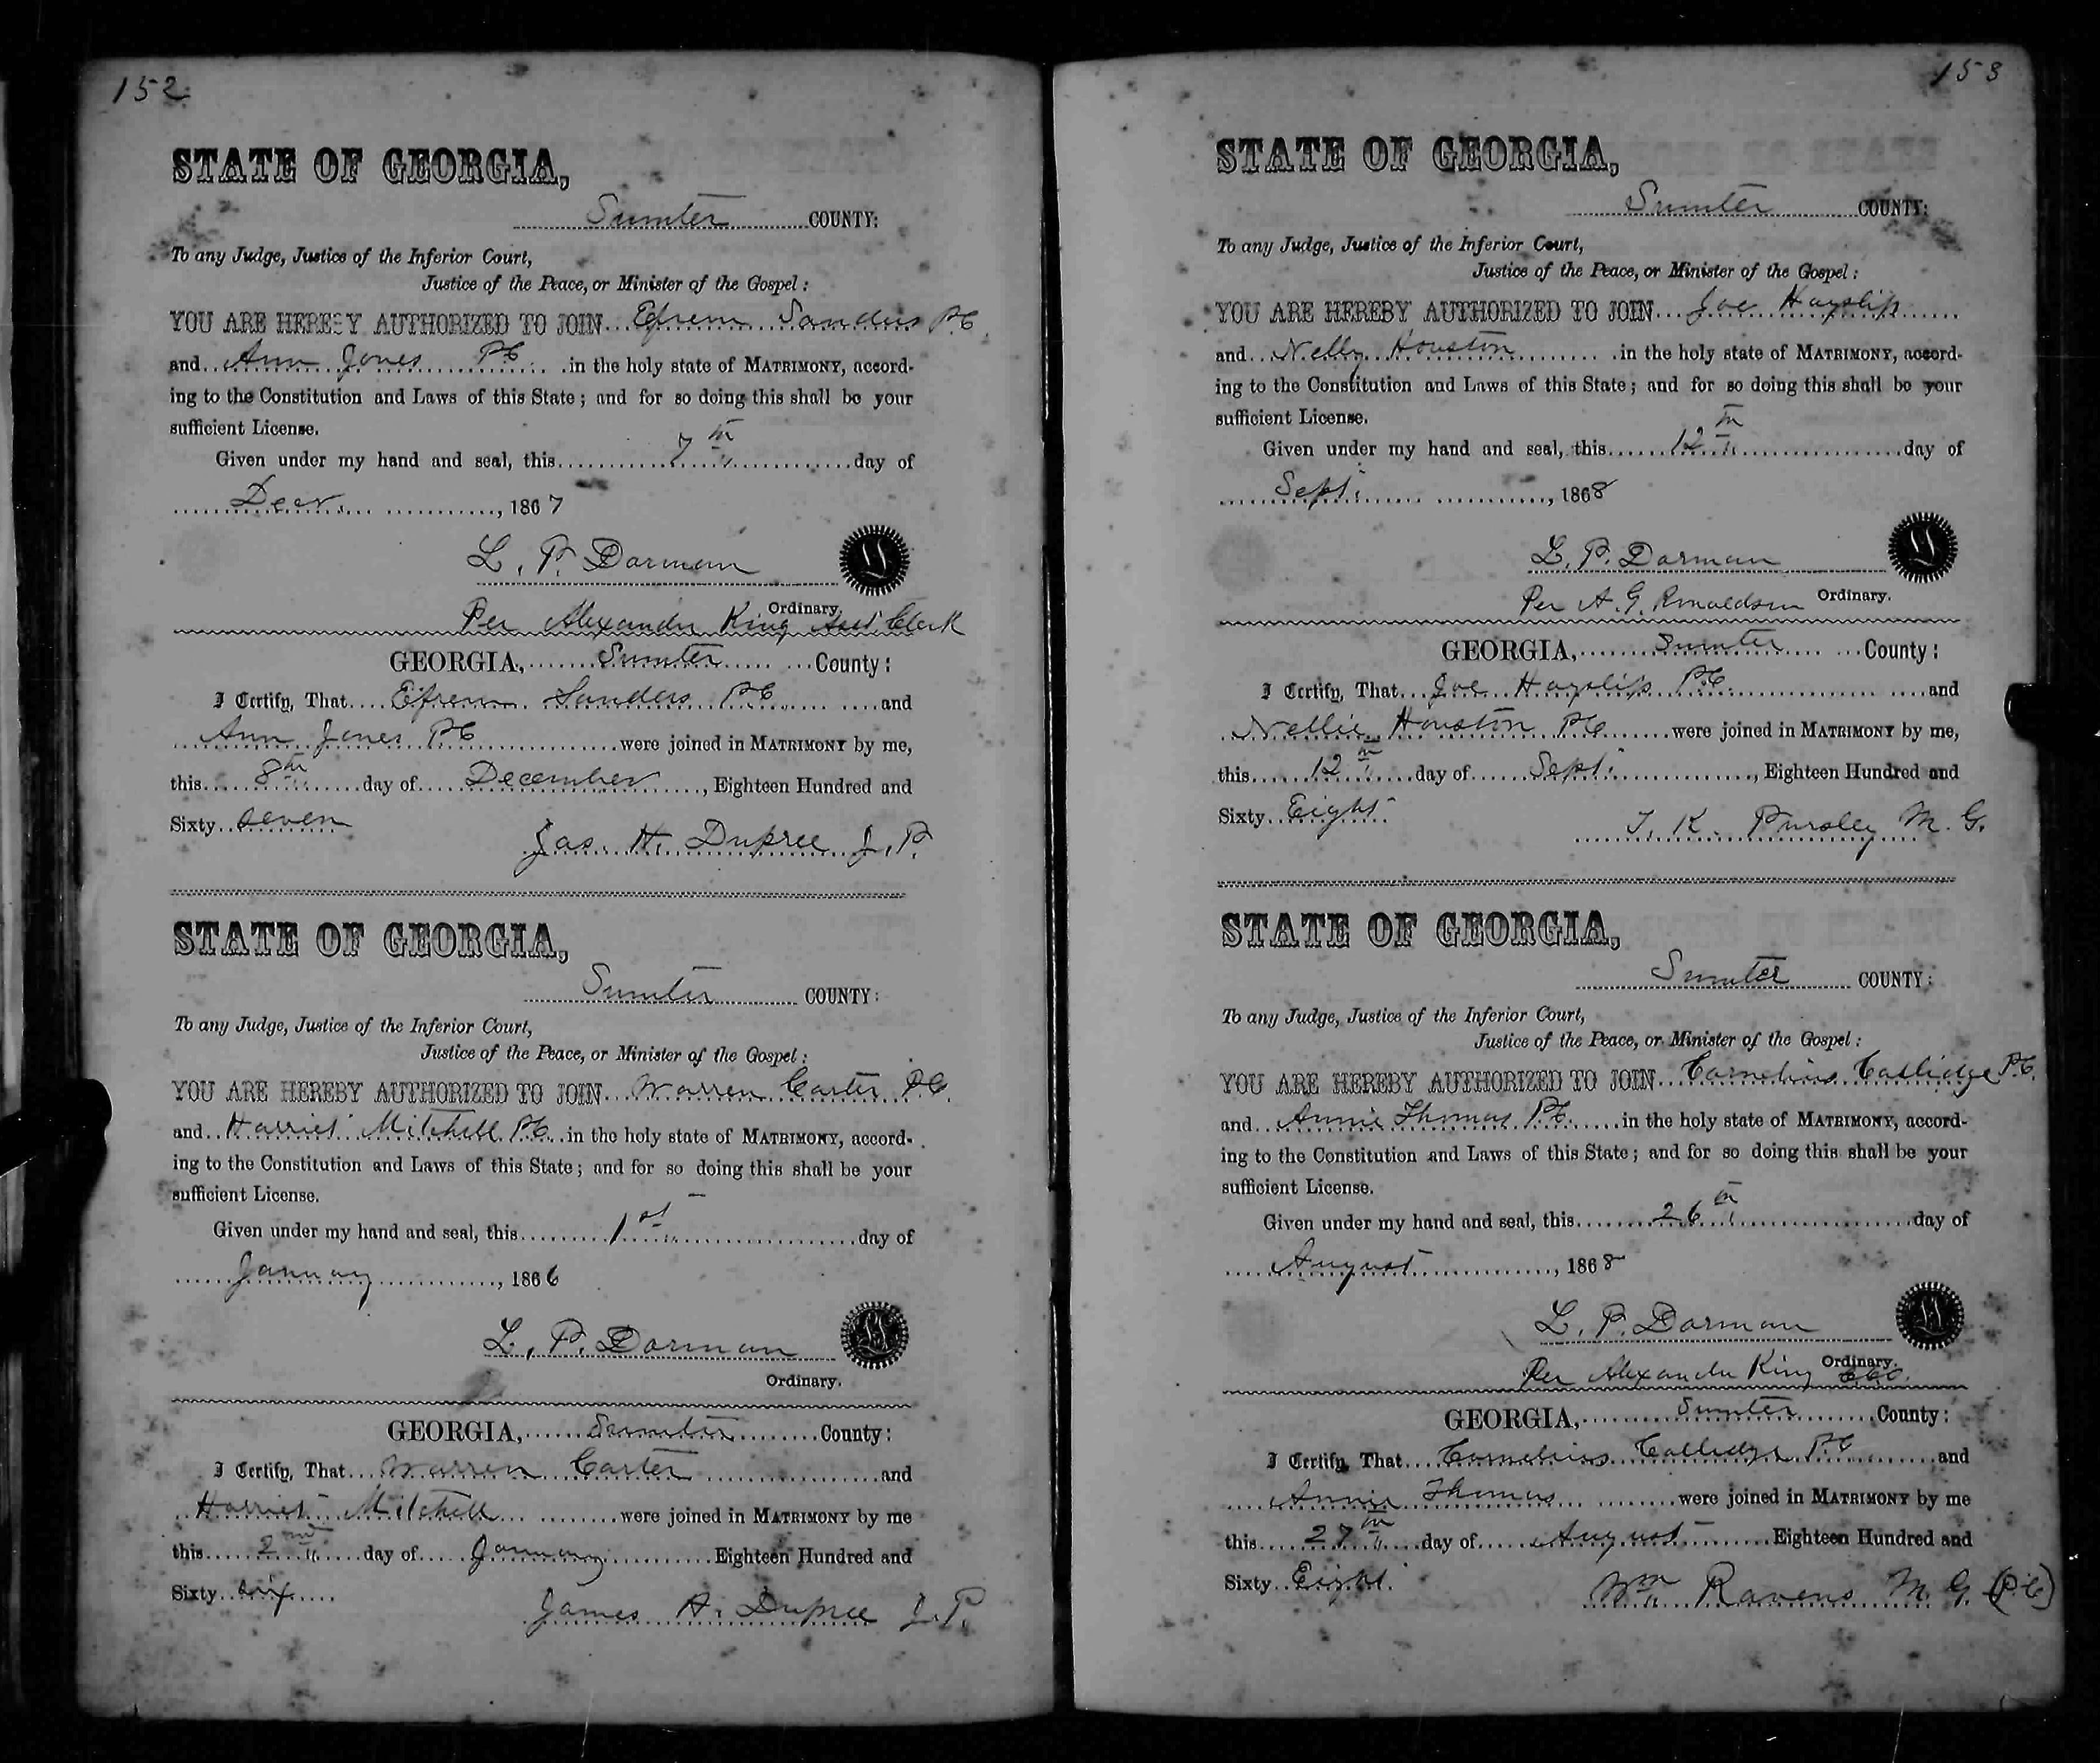 152
STATE OF GEORGIA,
Sumter COUNTY:
To any Judge, Justice of the Inferior Court,
Justice of the Peace, or Minister of the Gospel:
YOU ARE HEREBY AUTHORIZED TO JOIN Efrem Sanders P.C
and Ann Jones PC in the holy state of MATRIMONY, accord-
ing to the Constitution and Laws of this State; and for so doing this shall be your
sufficient License.
Given under my hand and seal, this 7th day of
Decr., 1867
L. P. Dorman
Ordinary.
Per Alexander King Asst Clerk
GEORGIA, Sumter County:
I Certify, That Efrem Sanders PC and
Ann Jones PC were joined in MATRIMONY by me,
this 8th day of December, Eighteen Hundred and
Sixty seven
Jas. H. Dupree J.P.
STATE OF GEORGIA,
Sumter COUNTY:
To any Judge, Justice of the Inferior Court,
Justice of the Peace, or Minister of the Gospel:
YOU ARE HEREBY AUTHORIZED TO JOIN Warren Carter P.C.
and Harriet Mitchell PC in the holy state of MATRIMONY, accord-
ing to the Constitution and Laws of this State; and for so doing this shall be your
sufficient License.
Given under my hand and seal, this 1st day of
January, 1866
L. P. Dorman
Ordinary.
GEORGIA, Sumter County:
I Certify, That Warren Carter and
Harriet Mitchell were joined in MATRIMONY by me
this 2nd day of January Eighteen Hundred and
Sixty six
James H. Dupree J.P.
153
STATE OF GEORGIA,
Sumter COUNTY:
To any Judge, Justice of the Inferior Court,
Justice of the Peace, or Minister of the Gospel:
YOU ARE HEREBY AUTHORIZED TO JOIN Joe Hayslip
and Nelly Houston in the holy state of MATRIMONY, accord-
ing to the Constitution and Laws of this State; and for so doing this shall be your
sufficient License.
Given under my hand and seal, this 12th day of
Sept., 1868
L. P. Dorman
Per A. G. Ronaldson Ordinary.
GEORGIA, Sumter County:
I Certify, That Joe Hayslip PC and
Nellie Houston PC were joined in MATRIMONY by me,
this 12th day of Sept., Eighteen Hundred and
Sixty Eight
T. K. Pursley M. G.
STATE OF GEORGIA,
Sumter COUNTY:
To any Judge, Justice of the Inferior Court,
Justice of the Peace, or Minister of the Gospel:
YOU ARE HEREBY AUTHORIZED TO JOIN Cornelius P.C.
and Annie Thomas PC in the holy state of MATRIMONY, accord-
ing to the Constitution and Laws of this State; and for so doing this shall be your
sufficient License.
Given under my hand and seal, this 26th day of
August, 1868
L. P. Dorman
Ordinary.
Per Alexander King
GEORGIA, Sumter County:
I Certify, That Cornelius PC and
Annie Thomas were joined in MATRIMONY by me
this 27th day of August Eighteen Hundred and
Sixty Eight
Wm. Ravens M. G. (P.C)